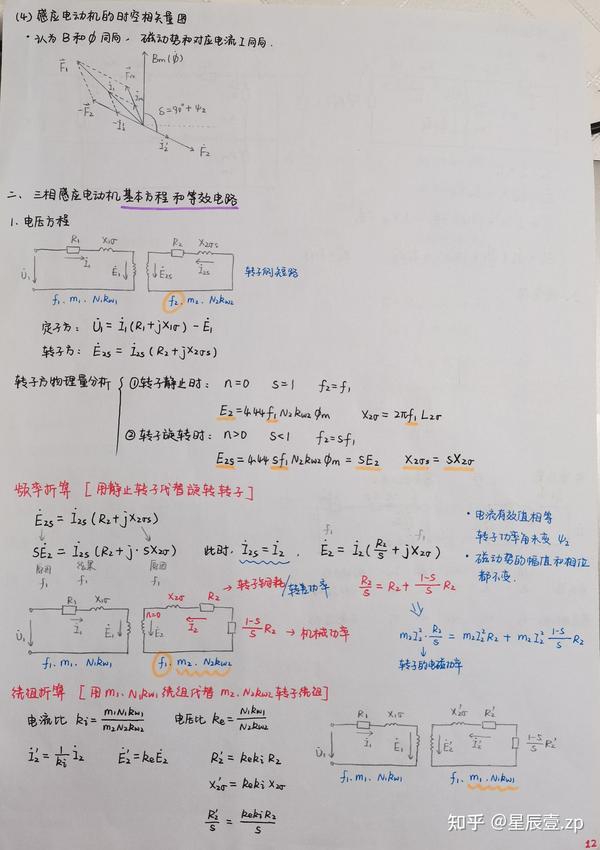 (4) 感应电动机的时空相矢量图
· 认为 B 和 φ 同向，磁动势和对应电流 I 同向.
Bm(φ̇)
F̄₁
F̄m
İ₁
İm
-F̄₂
-İ₂'
δ=90°+ψ₂
İ₂'
F̄₂
二、三相感应电动机基本方程和等效电路
1. 电压方程
R₁ X₁σ R₂ X₂σs
U̇₁ İ₁ Ė₁ Ė₂s İ₂s 转子侧短路
f₁、m₁、N₁kw₁ f₂、m₂、N₂kw₂
定子方： U̇₁ = İ₁(R₁+jX₁σ) - Ė₁
转子方： Ė₂s = İ₂s(R₂+jX₂σs)
转子方物理量分析 ①转子静止时： n=0 s=1 f₂=f₁
E₂=4.44f₁N₂kw₂Φm X₂σ=2πf₁L₂σ
②转子旋转时： n>0 s<1 f₂=sf₁
E₂s=4.44sf₁N₂kw₂Φm=sE₂ X₂σs=sX₂σ
频率折算 [用静止转子代替旋转转子]
Ė₂s = İ₂s(R₂+jX₂σs)
sĖ₂ = İ₂s(R₂+j·sX₂σ) 此时，İ₂s=İ₂， Ė₂ = İ₂(R₂/s+jX₂σ)
f₁ f₁
f₁ f₁ f₁
· 电流有效值相等
转子功率角未变 ψ₂
· 磁动势的幅值和相位
都不变.
R₁ X₁σ X₂σ R₂ → 转子铜耗/转差功率
U̇₁ İ₁ Ė₁ n=0 Ė₂ İ₂ (1-s)/s R₂ → 机械功率
f₁、m₁、N₁kw₁ f₁、m₂、N₂kw₂
R₂/s = R₂ + (1-s)/s R₂
m₂I₂²·R₂/s = m₂I₂²R₂ + m₂I₂² (1-s)/s R₂
转子的电磁功率
绕组折算 [用 m₁、N₁kw₁ 绕组代替 m₂、N₂kw₂ 转子绕组]
电流比 ki = m₁N₁kw₁/m₂N₂kw₂ 电压比 ke = N₁kw₁/N₂kw₂
İ₂' = 1/ki İ₂ Ė₂' = keĖ₂ R₂' = kekiR₂
X₂σ' = kekiX₂σ
R₂'/s = kekiR₂/s
R₁ X₁σ X₂σ' R₂'
U̇₁ İ₁ Ė₁ Ė₂' İ₂' (1-s)/s R₂'
f₁、m₁、N₁kw₁ f₁、m₁、N₁kw₁
知乎 @星辰壹.zp
12